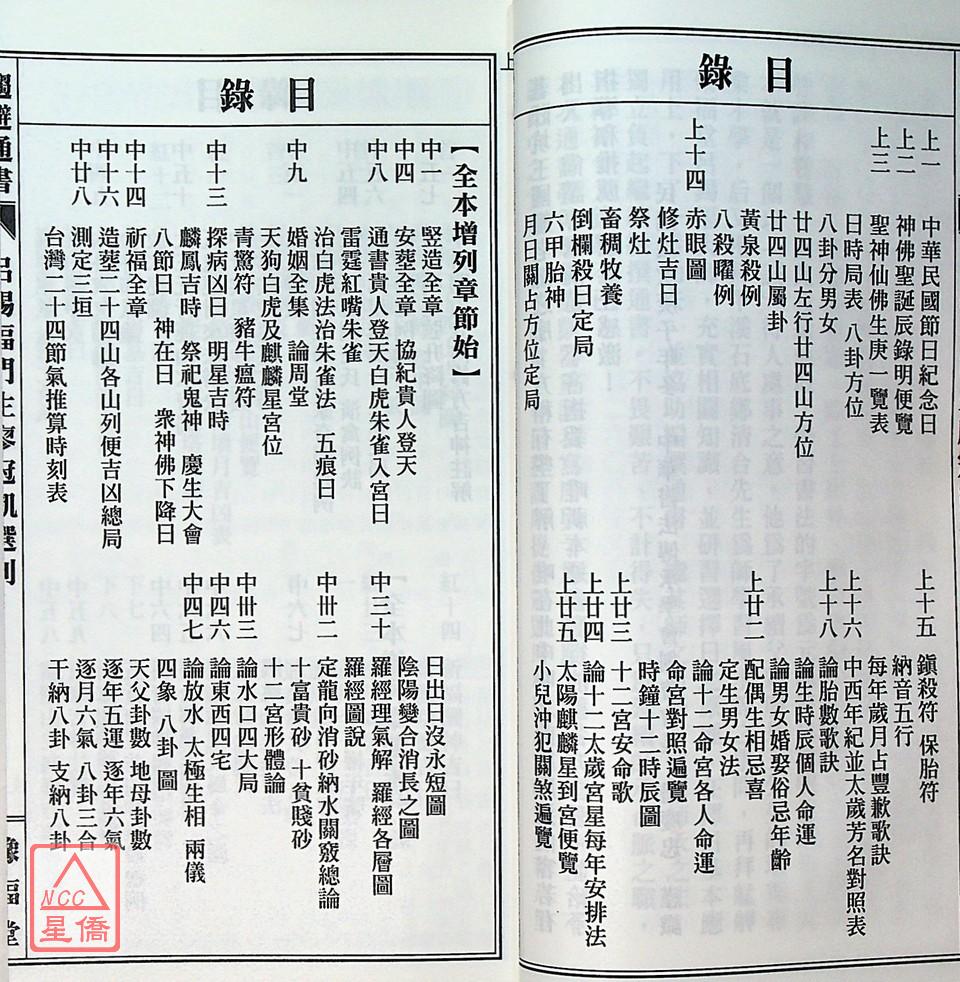 目錄
上一 中華民國節日紀念日
上二 神佛聖誕辰錄明便覽
上三 聖神仙佛生庚一覽表
日時局表 八卦方位
八卦分男女
廿四山左行廿四山方位
廿四山屬卦
黃泉殺例
八殺曜例
上十四 赤眼圖
修灶吉日
祭灶
畜稠牧養
倒欄殺日定局
六甲胎神
月日關占方位定局
上十五 鎮殺符 保胎符
納音五行
每年歲月占豐歉歌訣
上十六 中西年紀並太歲芳名對照表
上十八 論胎數歌訣
論生時辰個人命運
論男女婚娶俗忌年齡
上廿二 配偶生相忌喜
定生男女法
論十二命宮各人命運
命宮對照遍覽
時鐘十二時辰圖
上廿三 十二宮安命歌
上廿四 論十二太歲宮星每年安排法
上廿五 太陽麒麟星到宮便覽
小兒沖犯關煞遍覽
上
目錄
【全本增列章節始】
中一 豎造全章
中四 安葬全章 協紀貴人登天
中八 通書貴人登天白虎朱雀入宮日
雷霆紅嘴朱雀
治白虎法治朱雀法 五痕日
中九 婚姻全集 論周堂
天狗白虎及麒麟星宮位
青驚符 豬牛瘟符
中十三 探病凶日 明星吉時
麟鳳吉時 祭祀鬼神 慶生大會
八節日 神在日 衆神佛下降日
中十四 祈福全章
中十六 造葬二十四山各山列便吉凶總局
中廿八 測定三垣
台灣二十四節氣推算時刻表
日出日沒永短圖
陰陽變合消長之圖
中三十 羅經理氣解 羅經各層圖
羅經圖說
中卅二 定龍向消砂納水關竅總論
十富貴砂 十貧賤砂
十二宮形體論
中卅三 論水口四大局
中四六 論東西四宅
中四七 論放水 太極生相 兩儀
四象 八卦 圖
天父卦數 地母卦數
逐年五運 逐年六氣
逐月六氣 八卦三合
干納八卦 支納八卦
趨避通書
呂錫福門生廖冠凱選刊
豫福堂
NCC
星僑